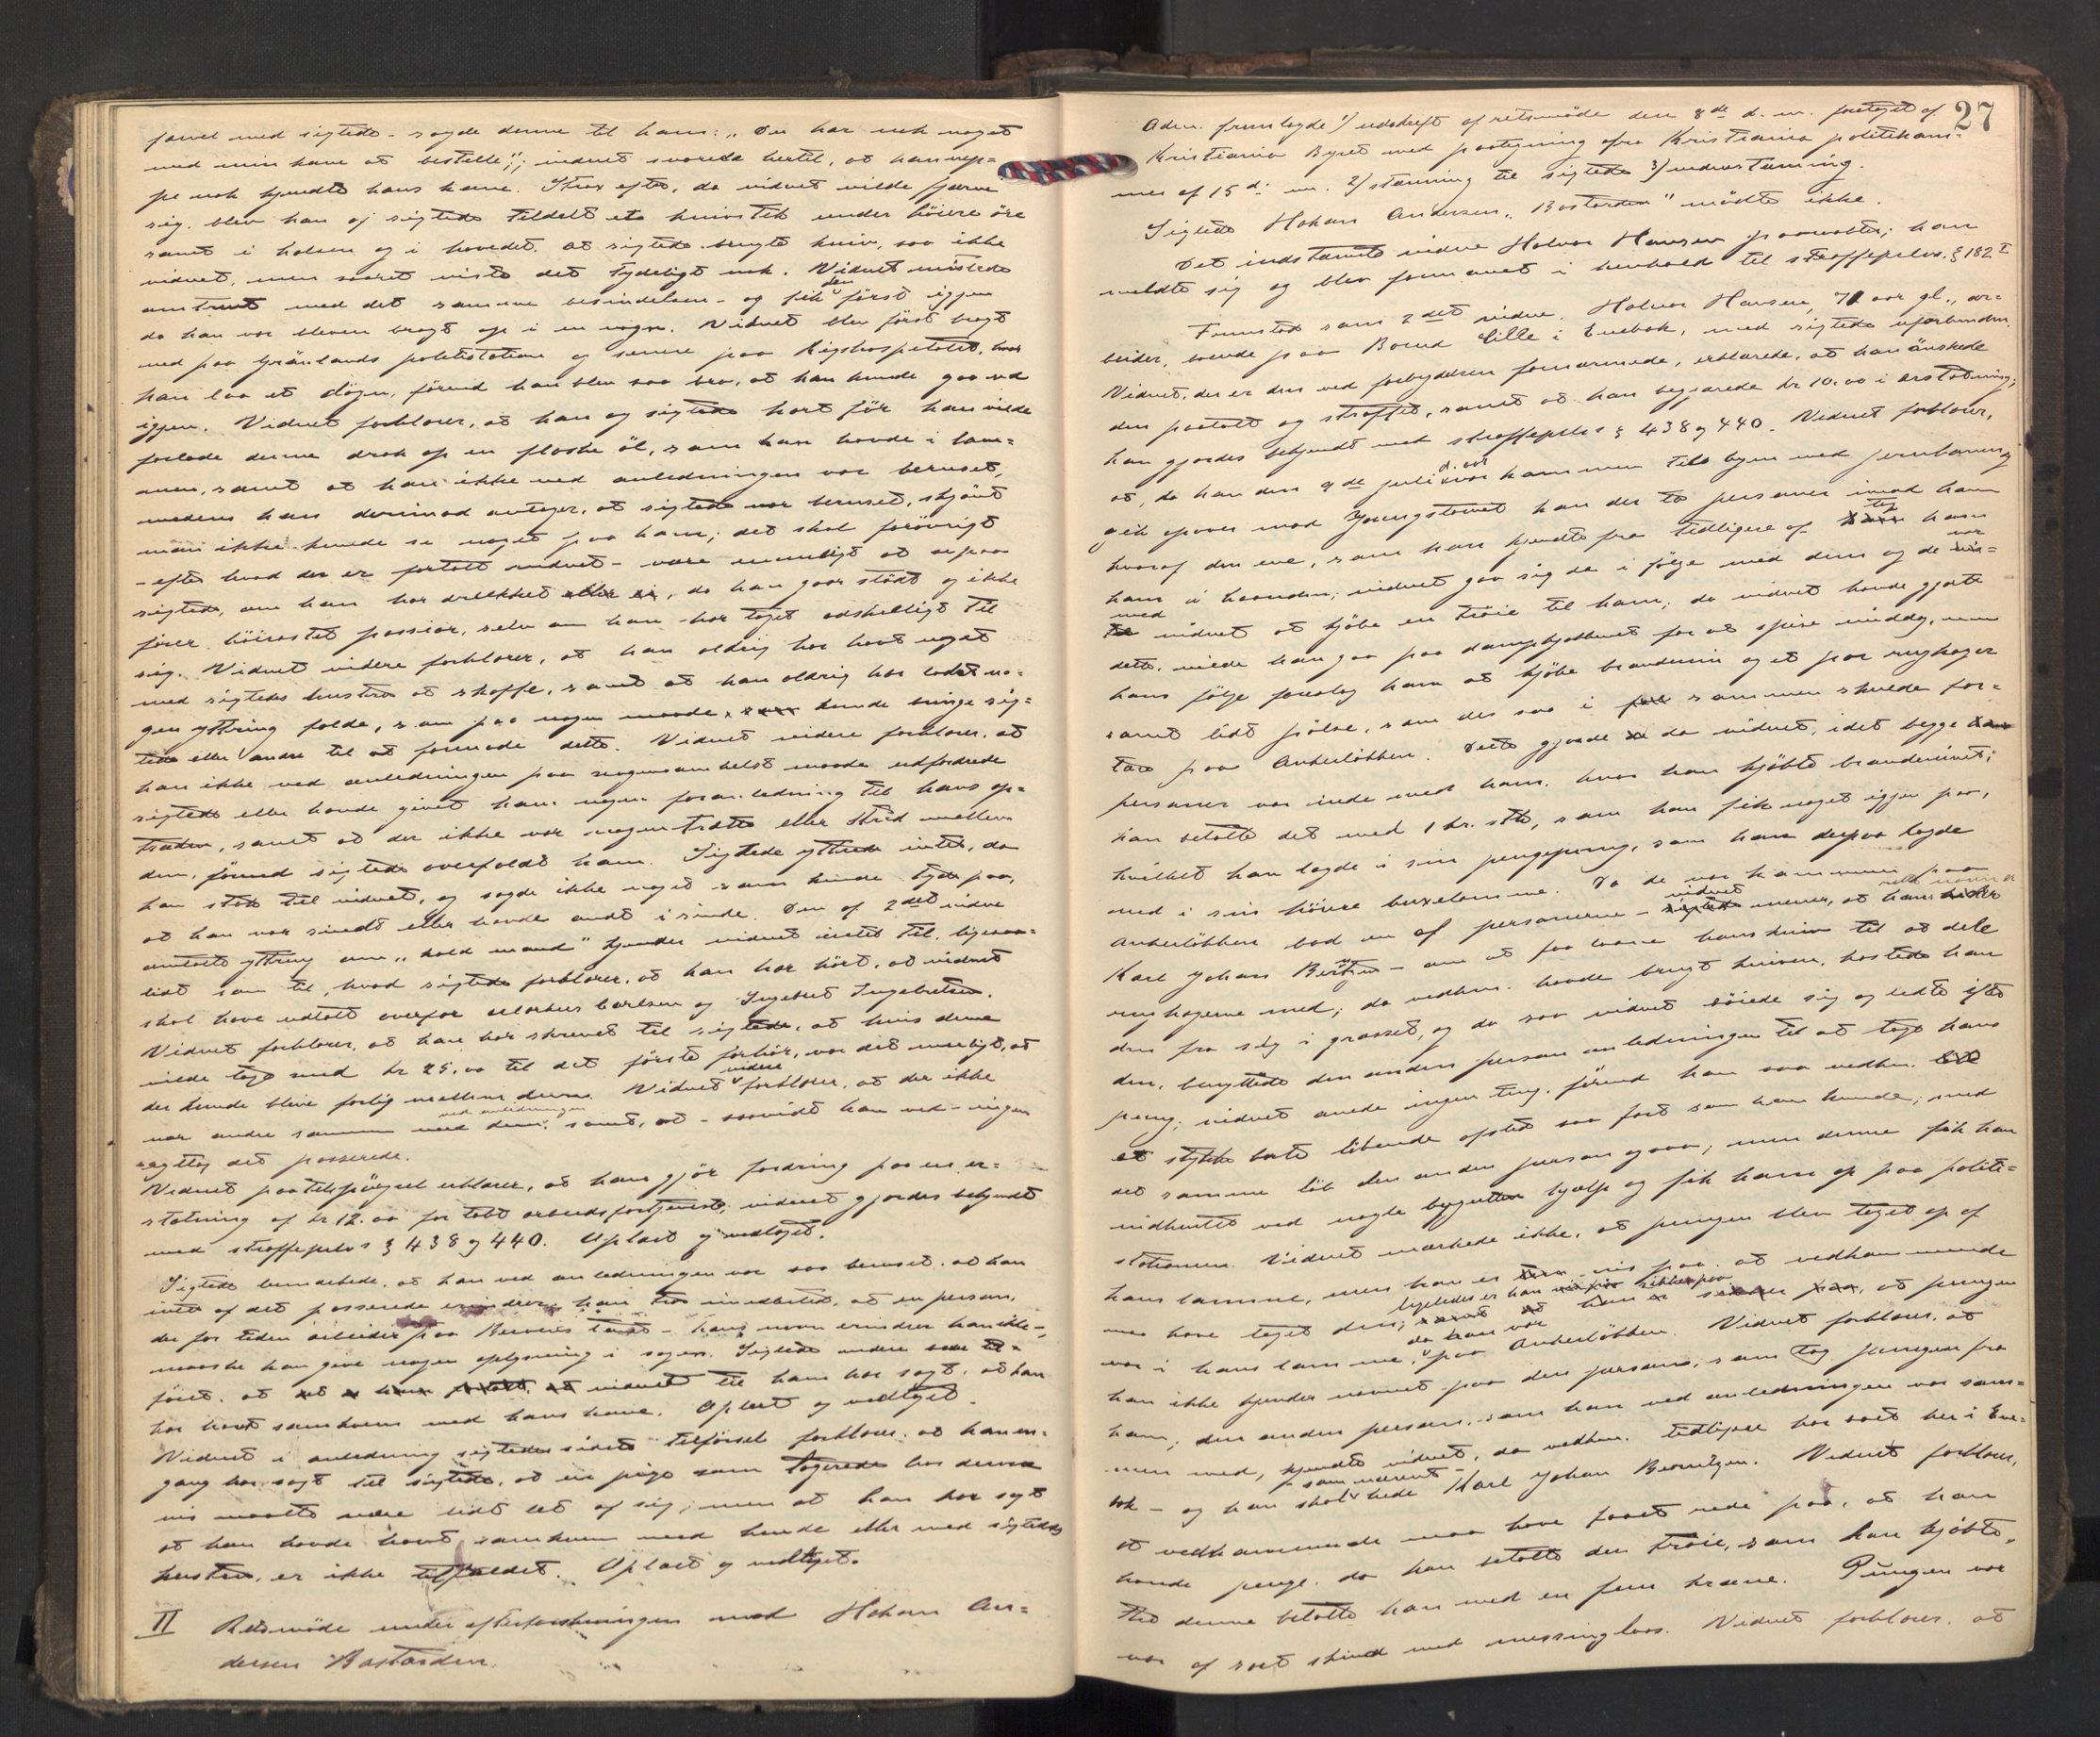 sammen med sigtede - sagde denne til ham: „Du har nok noget
med min kone at bestille"; vidnet svarede hertil, at han nep=
pe nok kjendte hans kone. Strax efter, da vidnet vilde fjerne
sig, blev han af sigtede tildelt et knivstik under høiere øre
samt i halsen og i hovedet. At sigtede brugte kniv, saa ikke
vidnet, men saaret viste det tydeligt nok. Vidnet mistede
omtrent med det samme besindelsen - og fik den først igjen
da han var bleven bragt op i en vogn. Vidnet blev først bragt
ned paa Grønlands politistation og senere paa Rigshospitalet, hvor
han laa et døgn, førend han blev saa bra, at han kunde gaa ud
igjen. Vidnet forklarer, at han og sigtede kort før han vilde
forlade denne drak op en flaske øl, som han havde i lom=
men, samt at han ikke ved anledningen var beruset,
medens han derimod antager, at sigtede var beruset, skjønt
man ikke kunde se noget paa ham; det skal forøvrigt
- efter hvad der er fortalt vidnet - være umuligt at se paa
sigtede, om han har drukket eller ei, da han gaar stødt og ikke
fører høirøstet passiar, selv om han har taget adskilligt til
sig. Vidnet videre forklarer, at han aldrig har havt noget
med sigtedes hustru at skaffe, samt at han aldrig har ladet no=
gen yttring falde, som paa nogen maade kunde bringe sig=
tede eller andre til at formode dette. Vidnet videre forklarer, at
han ikke ved anledningen paa nogensomhelst maade udfordrede
sigtede eller havde givet ham nogen foranledning til hans op=
træden, samt at der ikke var nogen trætte eller strid mellem
dem, førend sigtede overfaldt ham. Sigtede yttrede intet, da
han stak til vidnet, og sagde ikke noget som kunde tyde paa,
at han var sindt eller havde ondt i sinde. Den af 2det vidne
omtalte yttring om „kold mand" kjender vidnet intet til, ligesaa=
lidt som til, hvad sigtede forklarer, at han har hørt, at vidnet
skal have udtalt overfor Markus Carlsen og Ingebret Ingebretsen.
Vidnet forklarer, at han har skrevet til sigtede, at hvis denne
vilde tage med kr 25.00 til det første forhør, var det muligt, at
der kunde blive forlig mellem dem. Vidnet videre forklarer, at der ikke
var andre sammen med dem ved anledningen, samt, at - saavidt han ved - ingen
iagttog det passerede.
Vidnet paa tilspørgsel erklærer, at han gjør fordring paa en er=
statning af kr 12.00 for tabt arbeidsfortjeneste; vidnet gjordes bekjendt
med straffeprlov § 438 og 440. Oplæst og vedtaget.
Sigtede bemærkede, at han ved anledningen var saa beruset, at han
intet af det passerede erindrer; han tror imidlertid, at en person,
der for tiden arbeider paa Berveris - hans navn erindrer han ikke -,
maaske kan give nogen oplysning i sagen. Sigtede videre til=
føiet, at vidnet til ham har sagt, at han
har havt samkvem med hans kone. Oplæst og vedtaget.
Vidnet i anledning sigtedes sidste tilførsel forklarer, at han en=
gang har sagt til sigtede, at en pige som logerede hos denne
vis maatte være lidt let af sig; men at han har sagt
at han havde havt samkvem med hende eller med sigtedes
hustru, er ikke tilfældet. Oplæst og vedtaget.
II Retsmøde under efterforskningen mod Hakon An=
dersen Bastarden.
27
Adm. fremlagde 1) udskrift af retsmøde den 8de d. m. foretaget af
Kristiania Byret med paategning fra Kristiania politikam=
mer af 15 d. m. 2) stævning til sigtede 3) vidnestævning.
Sigtede Hakon Andersen „Bastarden" mødte ikke.
Det indstævnte vidne Halvor Hansen paaraabtes; han
meldte sig og blev formanet i henhold til straffeprlov. § 182 I
Fremstod som 2det vidne. Halvor Hansen, 71 aar gl., ar=
beider, boende paa Bøund lille i Enebak, med sigtede uforbunden.
Vidnet, der er den ved forbrydelsen fornærmede, erklærede, at han ønskede
den paatalt og straffet, samt at han begjærede kr 10.00 i erstatning;
han gjordes bekjendt med straffeprlov § 438 og 440. Vidnet forklarer,
at, da han den 9de juli d. aar var kommen til byen med jernbanen og
gik opover mod Youngstorvet kom der to personer imod ham
hvoraf den ene, som han kjendte fra tidligere af tog ham
ham i haanden; vidnet gav sig da i følge med dem og de var
med vidnet at kjøbe en trøie til ham; da vidnet havde gjort
dette, vilde han gaa paa dampkjøkkenet for at spise middag, men
hans følge foreslog ham at kjøbe brændevin og et par rugkager
samt lidt pølse, som de saa i sammen skulde for=
tære paa Ankerløkken. Dette gjorde da vidnet, idet begge
personer var inde med ham, hvor han kjøbte brændevinet;
han betalte det med 1 kr. stk, som han fik noget igjen paa,
hvilket han lagde i sin pengepung, som han derpaa lagde
ned i sin høire buxelomme. Da de var kommen paa
Ankerløkken bad en af personerne - vidnet mener, at hans rette navn er
Karl Johan Berntzen - om at faa laane hans kniv til at dele
rugkagerne med; da vedkm. havde brugt kniven, kastede han
den fra sig i græsset, og da saa vidnet bøiede sig og ledte efter
den, benyttede den anden person anledningen til at tage hans
pung; vidnet anede ingen ting, førend han saa vedkm.
et stykke borte løbende afsted saa fort som han kunde; med
det samme løb den anden person ogsaa, men denne fik han
indhentet ved nogle bygutters hjælp og fik ham op paa politi=
stationen. Vidnet mærkede ikke, at pungen blev taget op af
hans lomme, men han er vis paa, at vedkommende
maa have taget den; ligeledes er han sikker paa, at pungen
var i hans lomme, da han var paa Ankerløkken. Vidnet forklarer, at
han ikke kjender navnet paa den person, som tog pungen fra
ham; den anden person, som han ved anledningen var sam=
men med, kjendte vidnet, da vedkm. tidligere har boet her i Ene=
bak - og han skal - som nævnt - hede Karl Johan Berntzen. Vidnet forklarer,
at vedkommende maa have faaet rede paa, at han
havde penge, da han betalte den trøie, som han kjøbte,
thi denne betalte han med en fem krone. Pungen var
var af sort skind med messinglaas. Vidnet forklarer, at